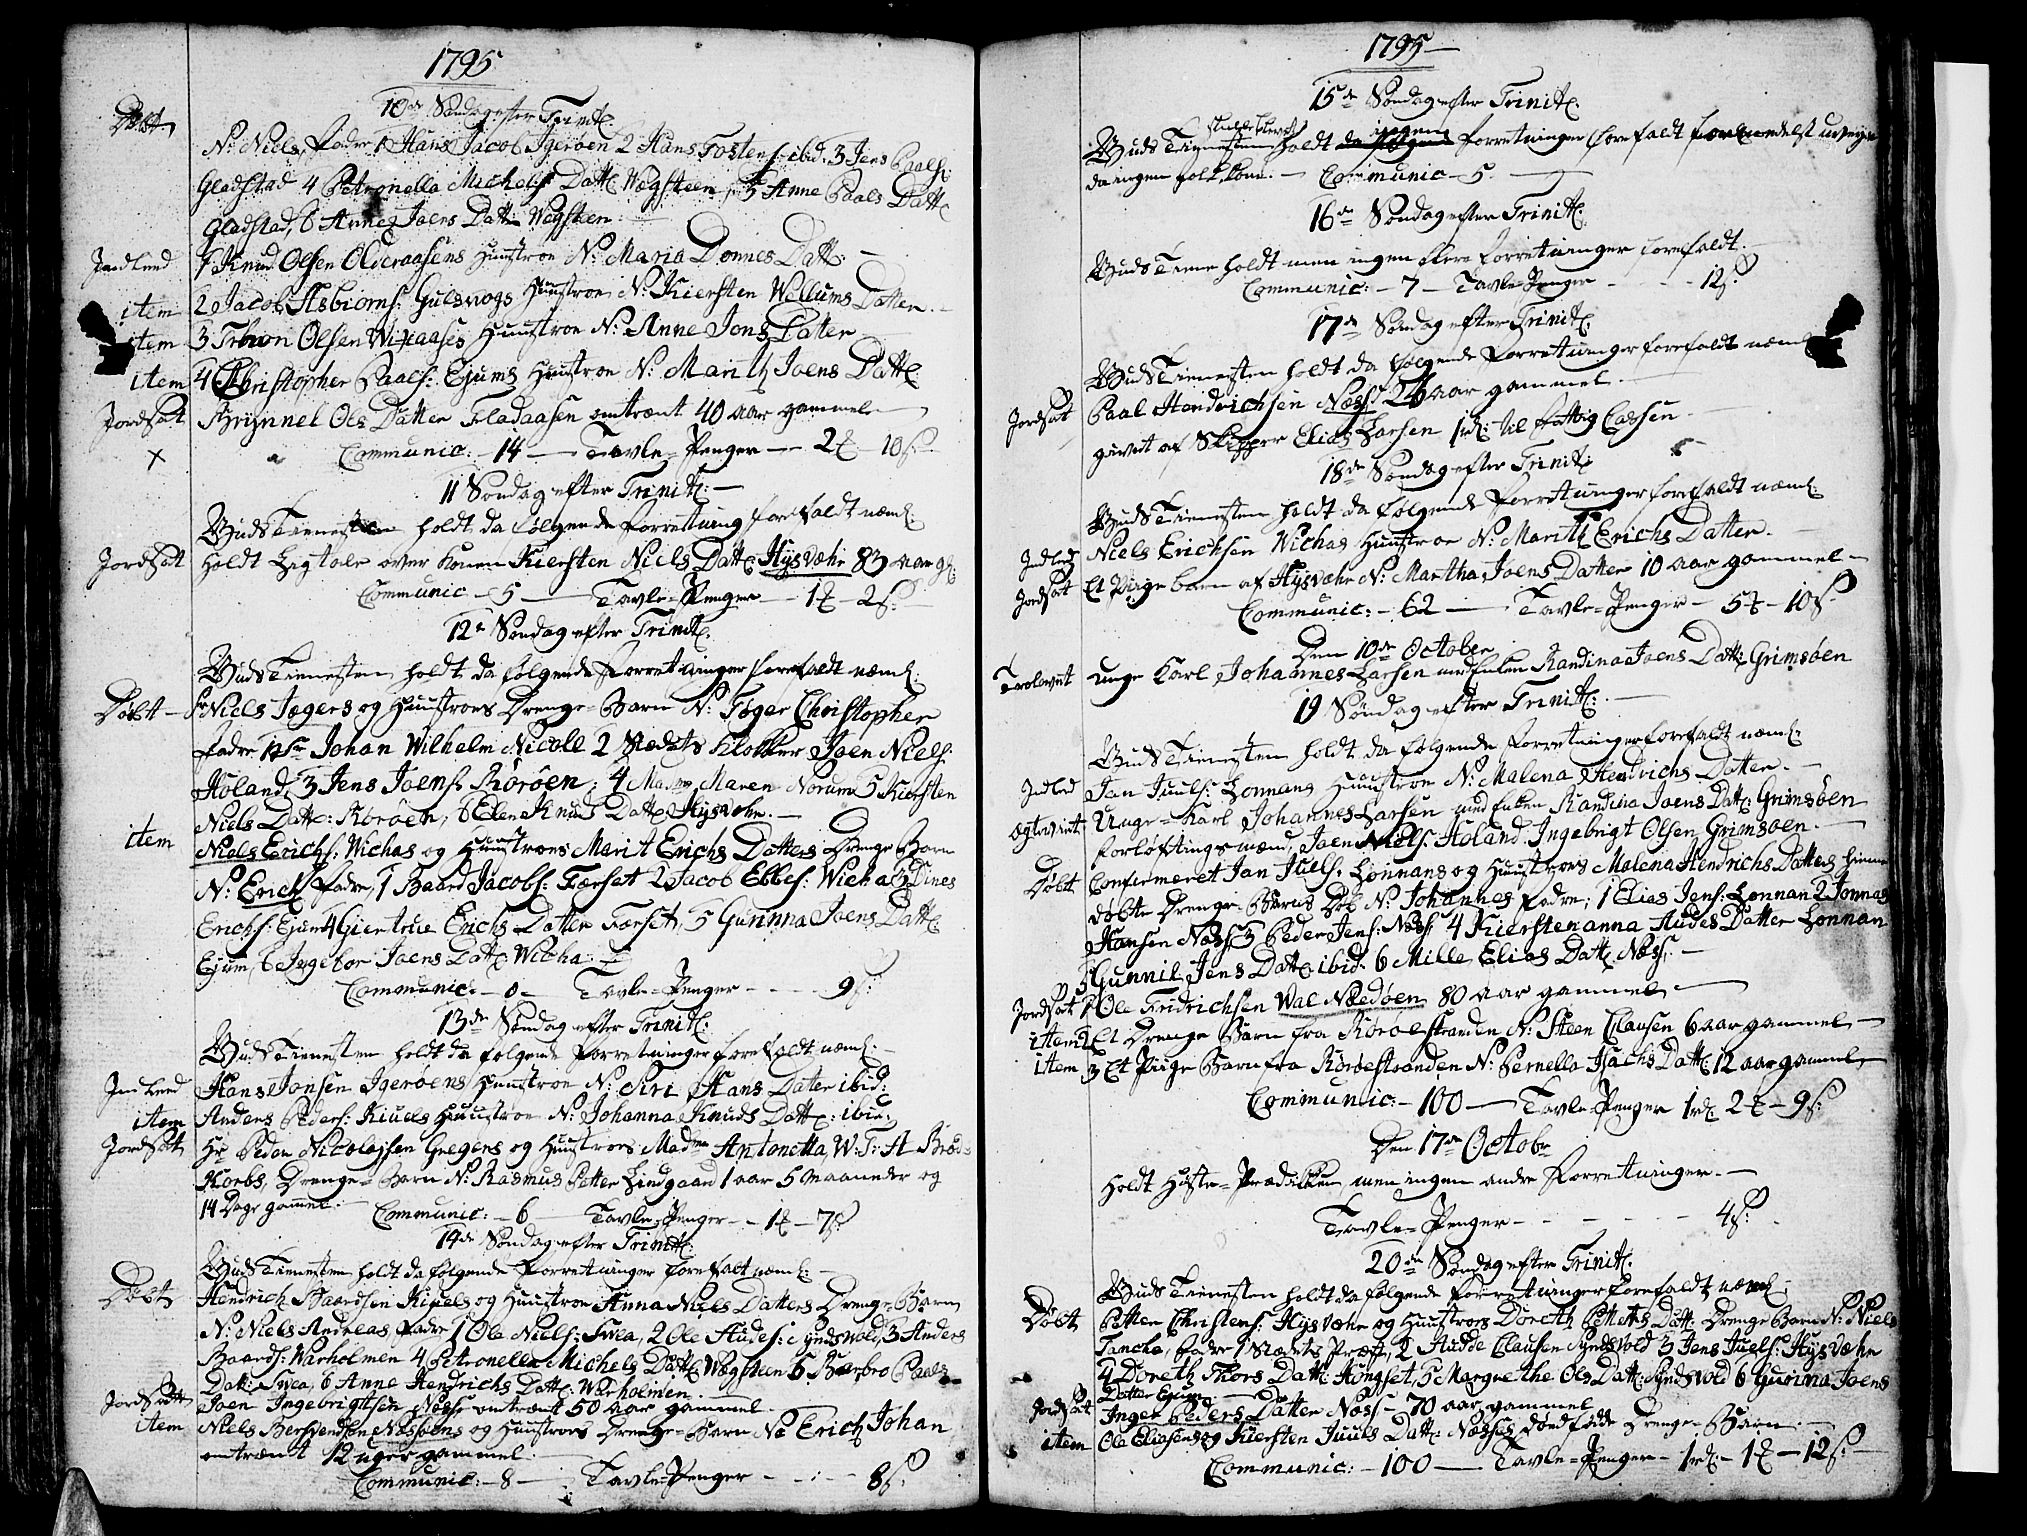 1795
10de Søndag efter Trinit:
Døbt
N: Niels, Fadre 1 Hans Jacob Igerøen 2 Hans Tostens: ibid: 3 Jens Paals:
Gladstad 4 Petronella Michels: Datt: Wægsteen, 5 Anne Paals Datt:
Gladstad, 6 Anne Joens Datt: Wegsteen
Indleed 1 Knud Olsen Olderaasens Huustroe N: Maria Donnes Datt:
item 2 Jacob Asbiørns: Gulsvogs Huustroe N: Kiersten Wellums Datter.
item 3 Olsen Huustroe N: Anne Jons Datter
item 4 Christopher Paals: Ejums Huustroe N: Marith Joens Datt:
Jordsat Brynnel Ols Datter Fladaasen omtrent 40 aar gammel
Communic: - 14 - Tavle-Penger - 2 10 s:
11 Søndag efter Trinit:
Guds Tienesten holdt da følgende Forretning forefaldt næml:
Jordsat Holdt Ligtale over Konen Kiersten Niels Datt: Hysvæhr 83 aar g:
Communic - 5 - Tavle-Penger - 1 - 2 s:
12te Søndag efter Trinit:
Guds Tienesten holdt da følgende Forretninger forefaldt næml:
Døbt - Sr Niels Jegers og Huustroes Drenge-Barn N: Tøger Christopher
Fadre 1 Sr Johan Wilhelm Nicoll 2 Stædets Klokker Joen Niels:
Holand, 3 Jens Joens: Rörøen, 4 Mad: Maren Norum 5 Kiersten
Niels Datt: Rörøen, 6 Elen Knuds Datt: Hysvæhr.
item Niels Erichs: Wichas og Huustroes Marit Erichs Datters Drenge Barn
N: Erich Fadre, 1 Baard Jacobs: Forset 2 Jacob Ebbes: Wicha 3 Dines
Erichs: Ejum 4 Giertrue Erichs Datter Forset, 5 Gurinna Joens Datt:
Ejum, 6 Ingebor Joens Datt: Wicha.
Communic: - 0 - Tavle-Penger - - - - 9 s:
13de Søndag efter Trinit:
Guds Tienesten holdt da følgende Forretninger forefaldt næml:
Indleed Hans Jonsen Igerøens Huustroe N: Siri Hans Dater ibid:
item Anders Peders: Kiuels Huustroe N: Johanna Knuds Datt: ibid:
Jordsatt Hr Peder Nicolajsen Gregers og Huustroes Madme Antonetta W: T: A Brod-
Korbs, Drenge-Barn N: Rasmus Petter Lindgaard 1 aar 5 Maaneder og
14 Dage gammel. Communic: - 6 - Tavle-Penger - - 1 - 7 s
14de Søndag efter Trinit:
Guds Tienesten holdt da følgende Forretninger forefalt næml:
Døbt Hendrich Baardsen Kiuels og Huustroe Anna Niels Datters Drenge-Barn
N: Niels Andreas, Fadre 1 Ole Niels: Swea, 2 Ole Audes: Syndsvold, 3 Anders
Baards: Warholmen 4 Petronella Michels Datt: Wægsteen 5 Barbro Paals
Datt: Swea, 6 Anne Hendrichs Datt: Warholmen.
Jordsatt Joen Ingebrigtsen Næsse omtrent 50 aar gammel
item Niels Berhendsen Næssøens og Huustroes Drenge-Barn N: Erich Johan
omtrent 12 uger gammel
Communic: - 8 - Tavle-Penger - - - 8 s:
1795
15de Søndag efter Trinit:
Guds Tienesten holdt ingen Forretninger forefaldt
da ingen folk kom. - Communic - 5 -
16de Søndag efter Trinit:
Guds Tiene holdt men ingen flere Forretninger forefaldt.
Communic: - 7 - Tavle-Penger - - - - 12 s:
17de Søndag efter Trinit:
Guds Tienesten holdt da følgende Forretninger forefaldt næml:
Jordsat Paal Hendrichsen Næss: 26 aar gammel
givet af Skipper Elias Larsen 1 rd: til fattig Cassen
18de Søndag efter Trinit:
Guds Tienesten holdt da følgende Forretninger forefaldt næml:
Indled Niels Erichsen Wichas Huustroe N: Marith Erichs Datter.
Jordsat Et Pige Barn af Hysvæhr N: Martha Joens Datter 10 aar gammel
Communic: - 62 - Tavle-Penger - 5 - 10 s
Den 10de October
Trolovet unge Karl Johannes Larsen med Enken Randina Joens Datt: Grimsøen
19 Søndag efter Trinit:
Guds Tienesten holdt da følgende Forretninger forefaldt næml:
Indled Jan Juuls: Lonnans Huustroe N: Malena Hendrichs Datter.
Ægteviet Unge-Karl Johannes Larsen med Enken Randina Joens Datt: Grimsøen
Forløftings mænd, Joen Niels: Holand. Ingebrigt Olsen Grimsøen.
Døbt Confirmeret Jan Juels: Lonnans og Huustroes Malena Hendrichs Datters hiemme
døbte Drenge-Barns Daab N: Johannes Fadre; 1 Elias Jens: Lonnan 2 Jonnas
Hansen Næss 3 Peder Jens: Næss: 4 Kierstenanna Audes Datter Lonnan
5 Gunnil Jens Datt: ibid: 6 Mille Elias Datt: Næss.
Jordsat 1 Ole Fridrichsen Wal Næedøen 80 aar gammel
item 2 Et Drenge Barn fra Rörøestranden N: Steen Clausen 6 aar gammel
item 3 Et Pige Barn fra Rörøestranden N: Pernella Isachs Datt: 12 aar gammel
Communic: - 100 - Tavle-Penger 1 rd: 2 - 9 s:
Den 17de Octobr
Holdt Høste-Prædikken, men ingen andre Forretninger.
Tavle-Penger - - - - - - 4 s:
20de Søndag efter Trinit:
Guds Tienesten holdt da følgende Forretninger forefaldt næml:
Døbt Petter Christens: Hysvæhr og Huustroes Doreth Petters Datt: Drenge Barn N: Niels
Tancke, Fadre 1 Stædets Præst, 2 Audde Clausen Syndsvold 3 Jens Juels: Hysvæhr
4 Doreth Thors Datt: Hongset, 5 Margrethe Ols Datt: Syndsvold 6 Gurina Joens
Datter Ejum
Jordsat Inger Peders Datter Næss - 70 aar gammel
item Ole Eliasens og Kiersten Juuls Datt: Næsses dødfødde Drenge-Barn.
Communic: - 100 - Tavle-Penger - 1 rd: - 1 - 12 s: